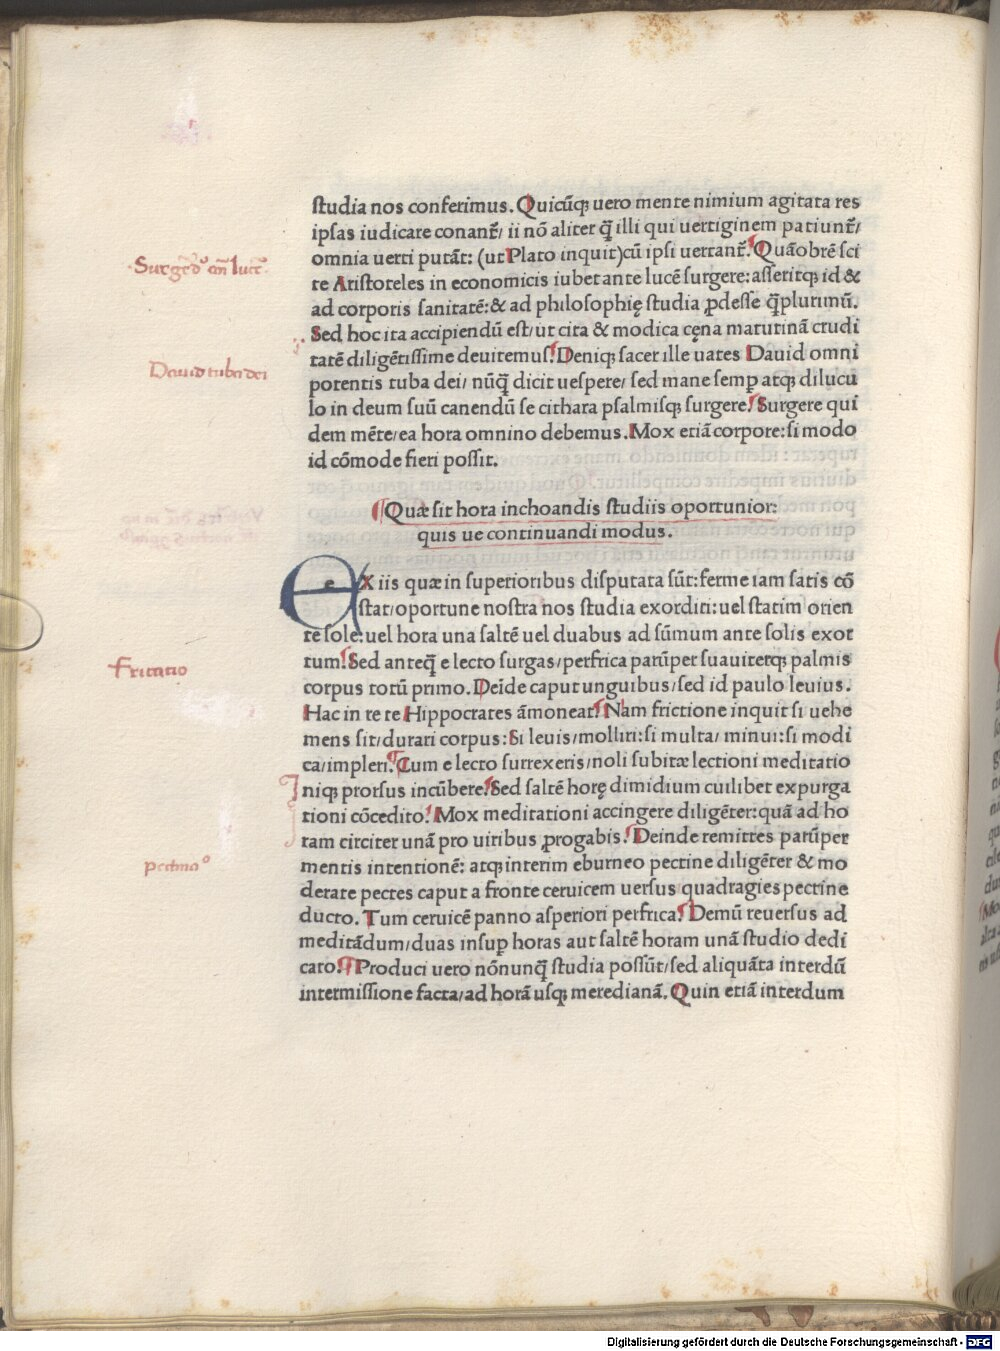 studia nos conferimus. Quicūqꝫ uero mente nimium agitata res
ipsas iudicare conant̃/ ii nō aliter q̄ illi qui uertiginem patiunt̃/
omnia uerti putāt: (ut Plato inquit) cū ipsi uertant̃. Quāobrē sci
te Aristoteles in economicis iubet ante lucē surgere: asseritqꝫ id &
ad corporis sanitatē: & ad philosophię studia ꝓdesse q̄plurimū.
Sed hoc ita accipiendū est/ ut cita & modica cęna matutinā crudi
tatē diligētissime deuitemus. Deniqꝫ sacer ille uates Dauid omni
potentis tuba dei/ nūq̄ dicit uespere/ sed mane semꝑ atqꝫ dilucu
lo in deum suū canendū se cithara psalmisqꝫ surgere. Surgere qui
dem mēte/ ea hora omnino debemus. Mox etiā corpore: si modo
id cōmode fieri possit.
Quæ sit hora inchoandis studiis oportunior:
quis ue continuandi modus.
EX iis quæ in superioribus disputata sūt: ferme iam satis cō
stat/ oportune nostra nos studia exordiri: uel statim orien
te sole: uel hora una saltē uel duabus ad sūmum ante solis exor
tum. Sed anteq̄ e lecto surgas/ perfrica parūper suauiterqꝫ palmis
corpus totū primo. Deīde caput unguibus/ sed id paulo leuius.
Hac in re te Hippocrates āmoneat. Nam frictione inquit si uehe
mens sit/ durari corpus: Si leuis/ molliri: si multa/ minui: si modi
ca/ impleri. Cum e lecto surrexeris/ noli subitæ lectioni meditatio
niqꝫ prorsus incūbere. Sed saltē horę dimidium cuilibet expurga
tioni cōcedito. Mox meditationi accingere diligēter: quā ad ho
ram circiter unā pro uiribus ꝓrogabis. Deinde remittes parūper
mentis intentionē: atqꝫ interim eburneo pectine diligēter & mo
derate pectes caput a fronte ceruicem uersus quadragies pectine
ducto. Tum ceruicē panno asperiori perfrica. Demū reuersus ad
meditādum/ duas insuꝑ horas aut saltē horam unā studio dedi
cato. Produci uero nōnunq̄ studia possūt/ sed aliquāta interdū
intermissione facta/ ad horā usqꝫ meredianā. Quin etiā interdum
Dauid tuba dei
Fricatio
Digitalisierung gefördert durch die Deutsche Forschungsgemeinschaft - DFG